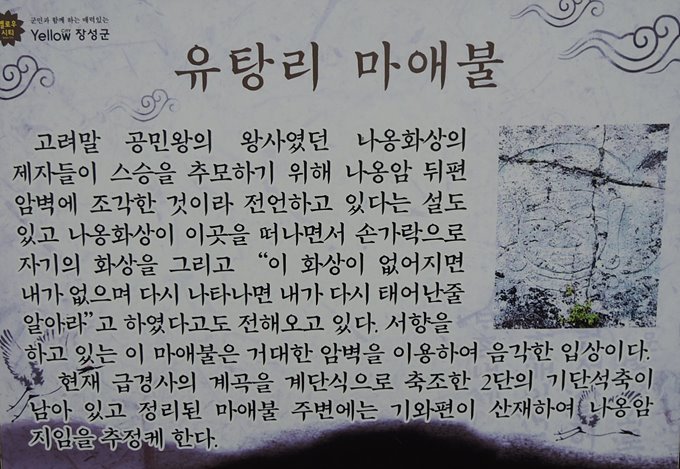 옐로우
시티
군민과 함께 하는 매력있는
Yellow City 장성군
유탕리 마애불
고려말 공민왕의 왕사였던 나옹화상의
제자들이 스승을 추모하기 위해 나옹암 뒤편
암벽에 조각한 것이라 전언하고 있다는 설도
있고 나옹화상이 이곳을 떠나면서 손가락으로
자기의 화상을 그리고 “이 화상이 없어지면
내가 없으며 다시 나타나면 내가 다시 태어난줄
알아라”고 하였다고도 전해오고 있다. 서향을
하고 있는 이 마애불은 거대한 암벽을 이용하여 음각한 입상이다.
현재 급경사의 계곡을 계단식으로 축조한 2단의 기단석축이
남아 있고 정리된 마애불 주변에는 기와편이 산재하여 나옹암
지임을 추정케 한다.